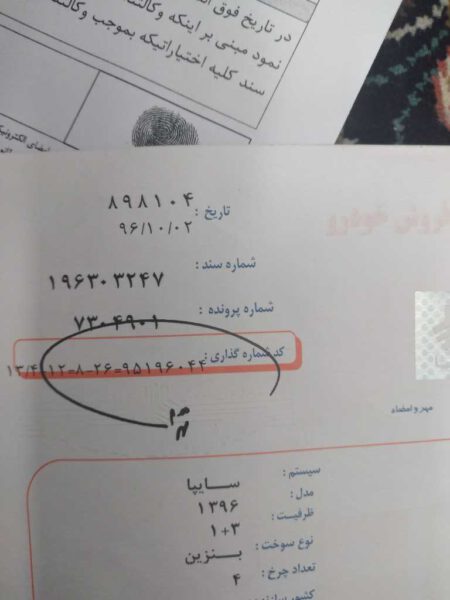 در تاریخ فوق
نمود مبنی بر اینکه وکالتنا
سند کلیه اختیاراتیکه بموجب وکالتنا
امضای الکترونیک
فروش خودرو
۸۹۸۱۰۴
تاریخ : ۹۶/۱۰/۰۲
شماره سند : ۱۹۶۳۰۳۲۴۷
شماره پرونده : ۷۳۰۴۹۰۱
کد شماره گذاری : ۱۳/۴-۱۲=۸-۲۶=۹۵۱۹۶۰۴۴
مهر و امضاء
سیستم : سایپا
مدل : ۱۳۹۶
ظرفیت : ۱+۳
نوع سوخت : بنزین
تعداد چرخ : ۴